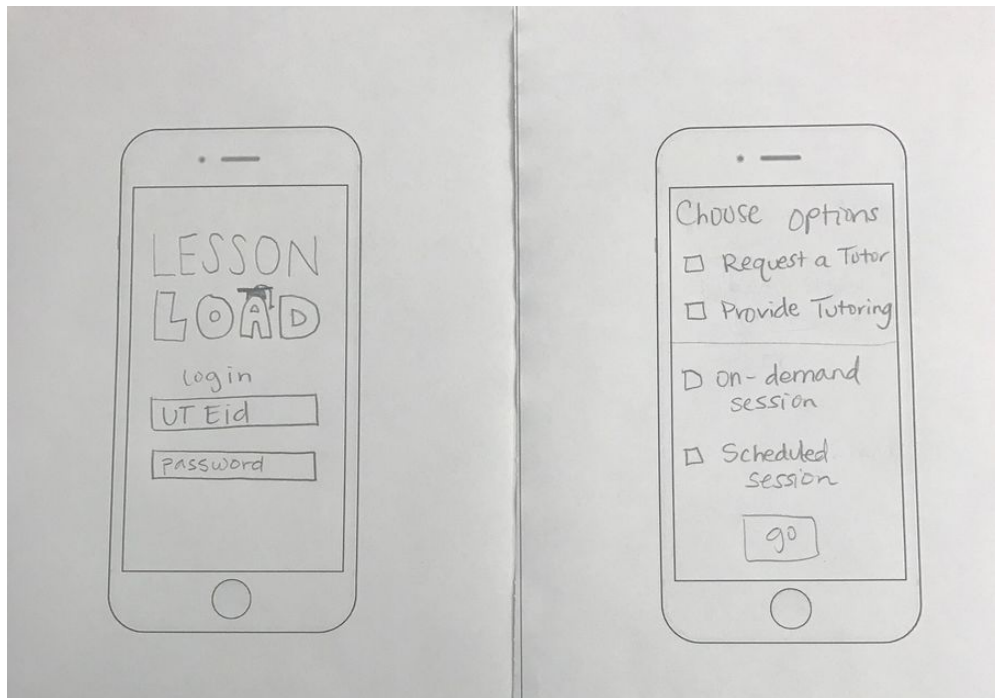 LESSON
LOAD
login
UT Eid
password
Choose options
Request a Tutor
Provide Tutoring
on-demand
session
Scheduled
session
go